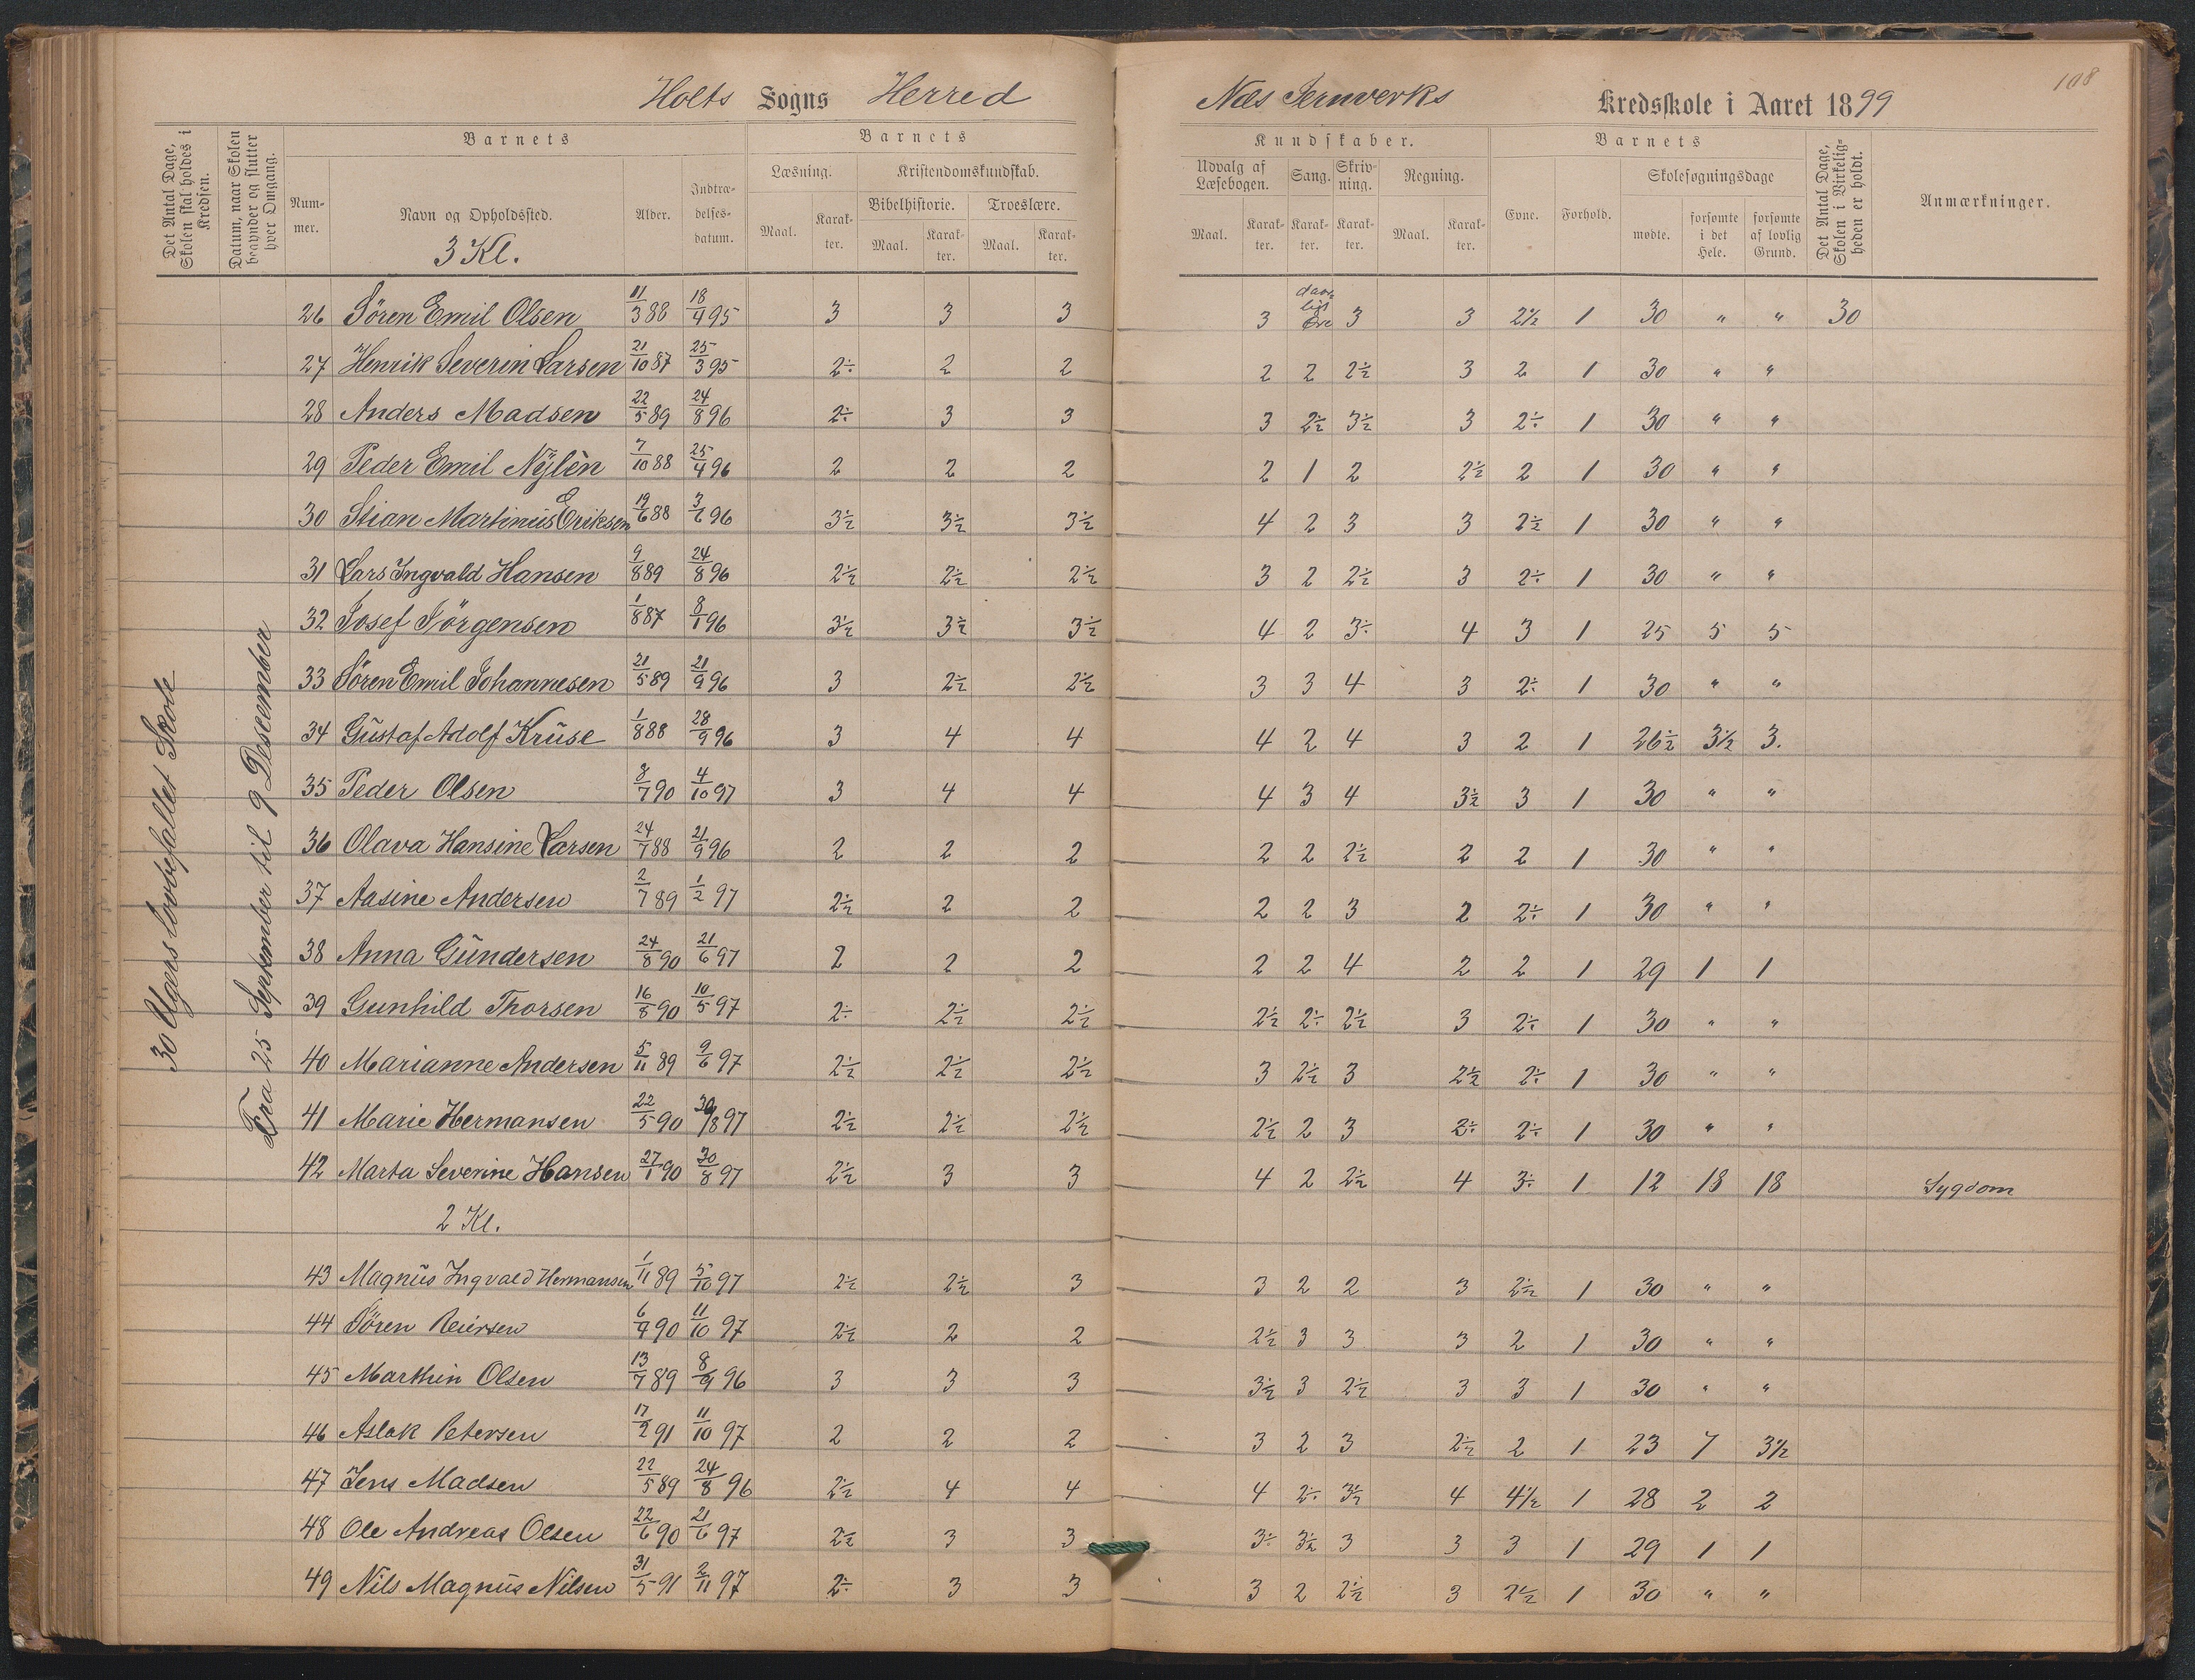 Holts Sogns Herred
Næs Jernverks Kredsskole i Aaret 1899
108
Det Antal Dage, Skolen skal holdes i Kredsen.
Datum, naar Skolen begynder og slutter hver Omgang.
Barnets
Barnets
Kundskaber.
Barnets
Det Antal Dage, Skolen i Virkeligheden er holdt.
Anmærkninger.
Nummer.
Navn og Opholdssted.
Alder.
Indtrædelsesdatum.
Læsning.
Kristendomskundskab.
Bibelhistorie.
Troeslære.
Udvalg af Læsebogen.
Sang.
Skrivning.
Regning.
Evne.
Forhold.
Skolesøgningsdage
Maal. Karakter. Maal. Karakter. Maal. Karakter. Maal. Karakter. Karakter. Karakter. Maal. Karakter.
mødte. forsømte i det Hele. forsømte af lovlig Grund.
30 Ugers lovbefallet Skole
Fra 25 September til 9 Descember
3 Kl.
26 Sören Emil Olsen 11/3 88 18/4 95 3 3 3 3 daarligt Øre 3 3 2½ 1 30 " " 30
27 Henrik Severin Larsen 21/10 87 25/3 95 2÷ 2 2 2 2 2½ 3 2 1 30 " "
28 Anders Madsen 22/5 89 24/8 96 2÷ 3 3 3 2½ 3½ 3 2÷ 1 30 " "
29 Peder Emil Nylèn 7/10 88 25/4 96 2 2 2 2 1 2 2½ 2 1 30 " "
30 Stian Martinus Eriksen 19/6 88 3/6 96 3½ 3½ 3½ 4 2 3 3 2½ 1 30 " "
31 Lars Ingvald Hansen 9/8 89 24/8 96 2½ 2½ 2½ 3 2 2½ 3 2÷ 1 30 " "
32 Josef Jörgensen 1/8 87 8/1 96 3½ 3½ 3½ 4 2 3÷ 4 3 1 25 5 5
33 Sören Emil Johannesen 21/5 89 21/9 96 3 2½ 2½ 3 3 4 3 2÷ 1 30 " "
34 Gustaf Adolf Kruse 1/8 88 28/9 96 3 4 4 4 2 4 3 2 1 26½ 3½ 3.
35 Peder Olsen 8/7 90 4/10 97 3 4 4 4 3 4 3½ 3 1 30 " "
36 Olava Hansine Larsen 24/7 88 21/9 96 2 2 2 2 2 2½ 2 2 1 30 " "
37 Aasine Andersen 2/7 89 1/2 97 2½ 2 2 2 2 3 2 2÷ 1 30 " "
38 Anna Gundersen 24/8 90 21/6 97 2 2 2 2 2 4 2 2 1 29 1 1
39 Gunhild Thorsen 16/8 90 10/5 97 2÷ 2½ 2½ 2½ 2÷ 2½ 3 2÷ 1 30 " "
40 Marianne Andersen 5/11 89 9/6 97 2½ 2½ 2½ 3 2½ 3 2½ 2÷ 1 30 " "
41 Marie Hermansen 22/5 90 30/8 97 2½ 2½ 2½ 2½ 2 3 2÷ 2÷ 1 30 " "
42 Marta Severine Hansen 27/1 90 30/8 97 2½ 3 3 4 2 2½ 4 3÷ 1 12 18 18 Sygdom
2 Kl.
43 Magnus Ingvald Hermansen 1/11 89 5/10 97 2½ 2½ 3 3 2 2 3 2½ 1 30 " "
44 Sören Reiersen 6/9 90 11/10 97 2½ 2 2 2½ 3 3 3 2 1 30 " "
45 Marthin Olsen 13/7 89 8/9 96 3 3 3 3½ 3 2½ 3 3 1 30 " "
46 Aslak Petersen 17/2 91 11/10 97 2 2 2 3 2 3 2½ 2 1 23 7 3½
47 Jens Madsen 22/5 89 24/8 96 2½ 4 4 4 2÷ 3½ 4 4½ 1 28 2 2
48 Ole Andreas Olsen 22/6 90 21/6 97 2½ 3 3 3÷ 3½ 3 3 3 1 29 1 1
49 Nils Magnus Nilsen 31/5 91 2/11 97 2÷ 3 3 3 2 2½ 3 2½ 1 30 " "